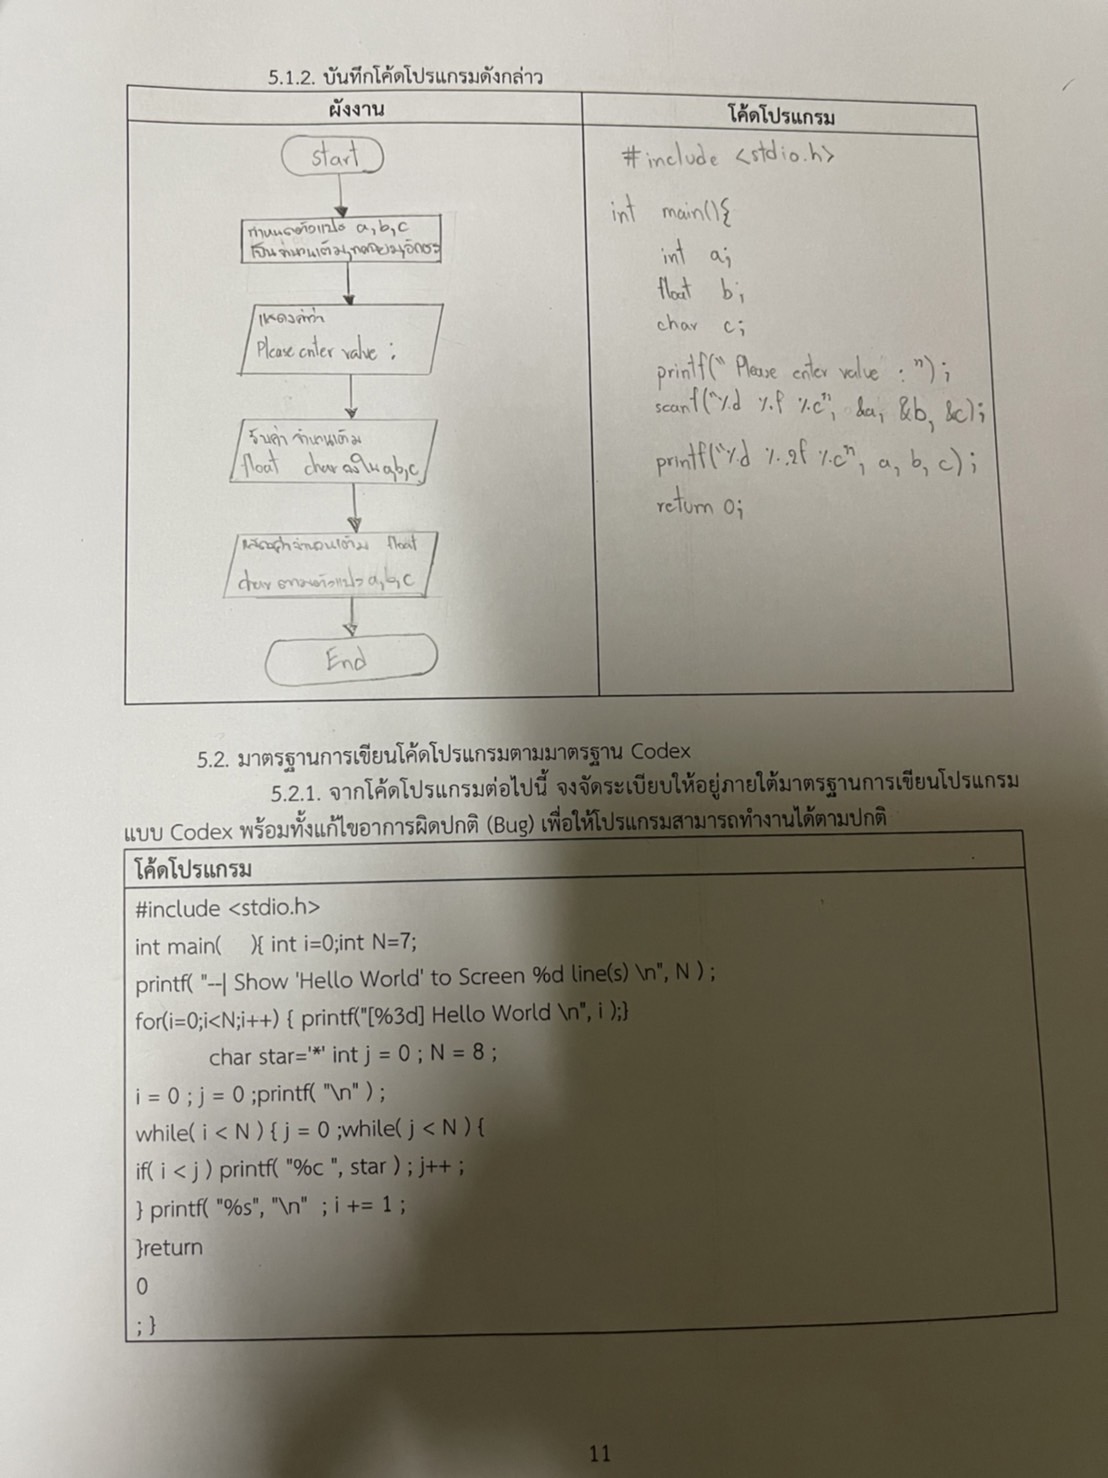 5.1.2. บันทึกโค้ดโปรแกรมดังกล่าว
ผังงาน
start
กำหนดตัวแปร a, b, c
เป็นจำนวนเต็ม,ทศนิยม,อักขระ
แสดงค่าว่า
Please enter value :
รับค่า จำนวนเต็ม
float char ลงใน a,b,c
แสดงค่าจำนวนเต็ม float
char ตามตัวแปร a, b, c
End
โค้ดโปรแกรม
#include <stdio.h>
int main(){
int a;
float b;
char c;
printf("Please enter value : ");
scanf("%d %f %c", &a, &b, &c);
printf("%d %.2f %c", a, b, c);
return 0;
5.2. มาตรฐานการเขียนโค้ดโปรแกรมตามมาตรฐาน Codex
5.2.1. จากโค้ดโปรแกรมต่อไปนี้ จงจัดระเบียบให้อยู่ภายใต้มาตรฐานการเขียนโปรแกรม
แบบ Codex พร้อมทั้งแก้ไขอาการผิดปกติ (Bug) เพื่อให้โปรแกรมสามารถทำงานได้ตามปกติ
โค้ดโปรแกรม
#include <stdio.h>
int main(    ){ int i=0;int N=7;
printf( "--| Show 'Hello World' to Screen %d line(s) \n", N ) ;
for(i=0;i<N;i++) { printf("[%3d] Hello World \n", i );}
char star='*' int j = 0 ; N = 8 ;
i = 0 ; j = 0 ;printf( "\n" ) ;
while( i < N ) { j = 0 ;while( j < N ) {
if( i < j ) printf( "%c ", star ) ; j++ ;
} printf( "%s", "\n"  ; i += 1 ;
}return
0
; }
11